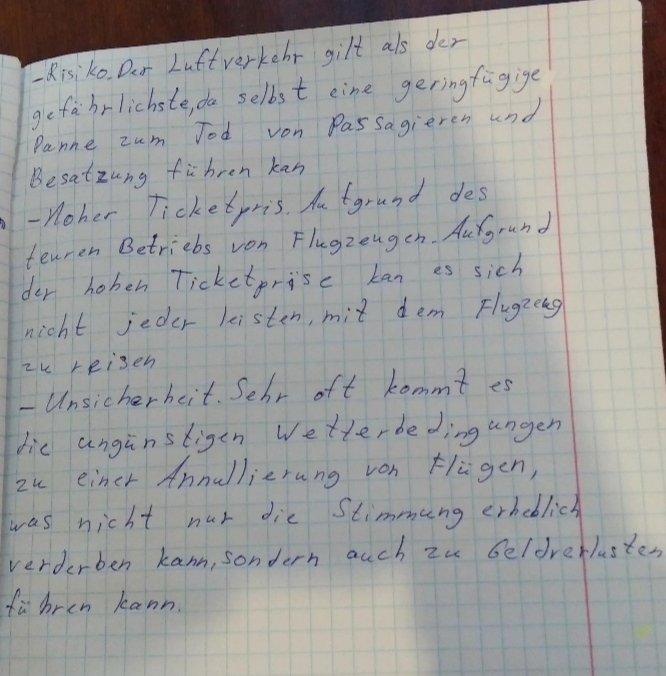 -Risiko. Der Luftverkehr gilt als der
gefährlichste, da selbst eine geringfügige
Panne zum Tod von Passagieren und
Besatzung führen kan
-Hoher Ticketpris. Aufgrund des
teuren Betriebs von Flugzeugen. Aufgrund
der hohen Ticketprise kan es sich
nicht jeder leisten, mit dem Flugzeug
zu reisen
- Unsicherheit. Sehr oft kommt es
die ungünstigen Wetterbedingungen
zu einer Annullierung von Flügen,
was nicht nur die Stimmung erheblich
verderben kann, sondern auch zu Geldverlusten
führen kann.